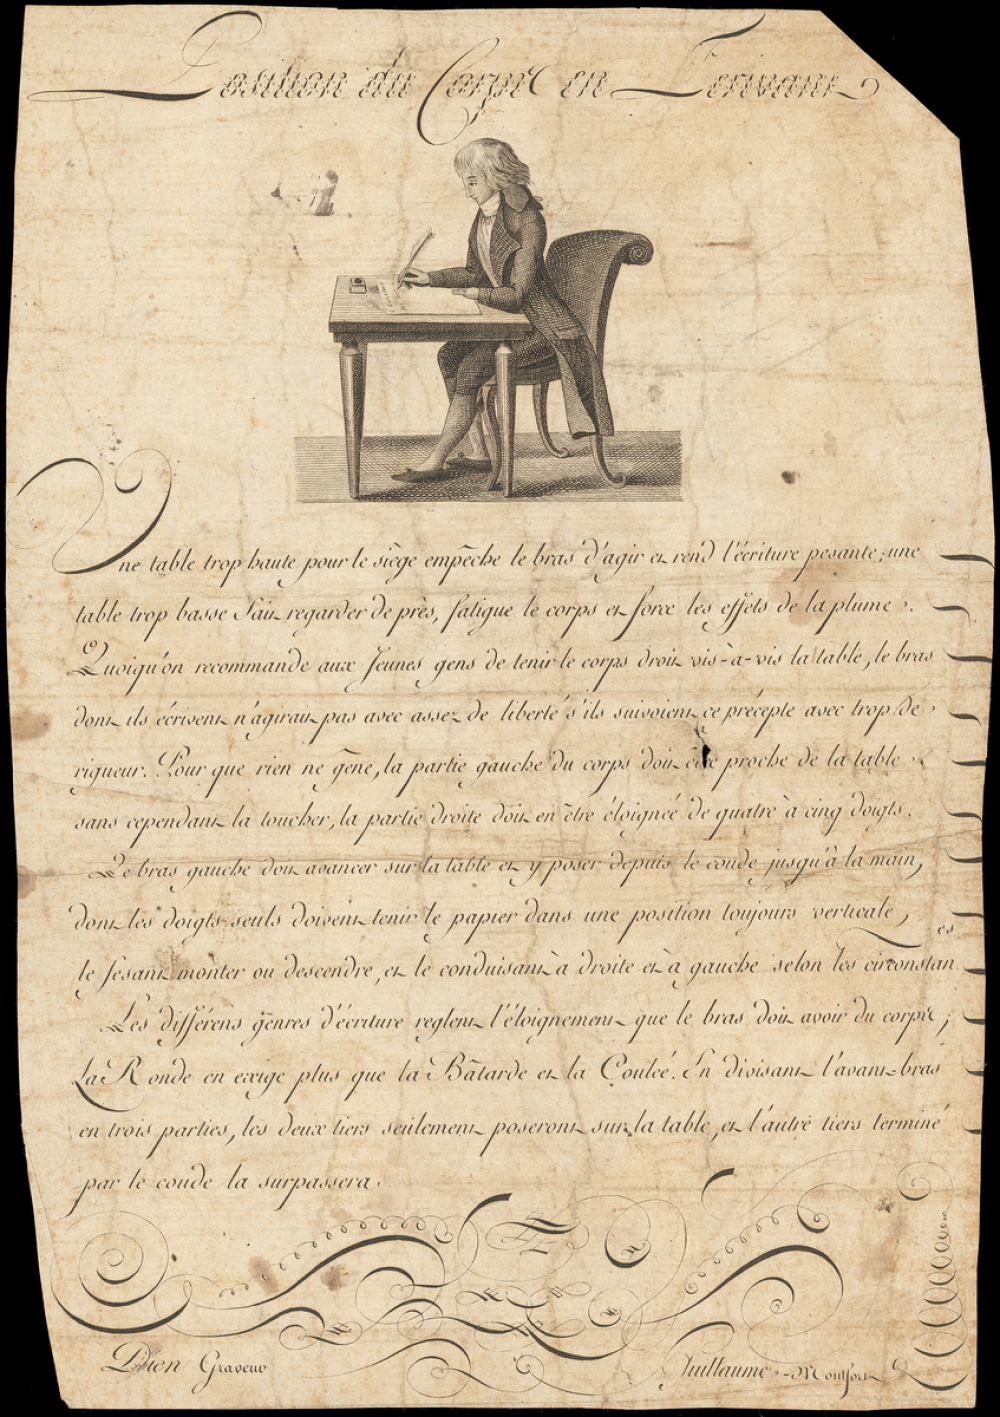 Position du Corps en Ecrivant
Une table trop haute pour le siège empêche le bras d'agir et rend l'écriture pesante; une
table trop basse fait regarder de près, fatigue le corps et force les effets de la plume.
Quoiqu'on recommande aux Jeunes gens de tenir le corps droit vis-à-vis la table, le bras
dont ils écrivent n'agirait pas avec assez de liberté s'ils suivoient ce précepte avec trop de
rigueur. Pour que rien ne gêne, la partie gauche du corps doit être proche de la table
sans cependant la toucher, la partie droite doit en être éloignée de quatre à cinq doigts.
Le bras gauche doit avancer sur la table et y poser depuis le coude jusqu'à la main,
dont les doigts seuls doivent tenir le papier dans une position toujours verticale,
le fesant monter ou descendre, et le conduisant à droite et à gauche selon les circonstances
Les différens genres d'écriture reglent l'éloignement que le bras doit avoir du corps;
La Ronde en exige plus que la Bâtarde et la Coulée. En divisant l'avant-bras
en trois parties, les deux tiers seulement poseront sur la table, et l'autre tiers terminé
par le coude la surpassera.
Dien Graveur
Guillaume-Montfort